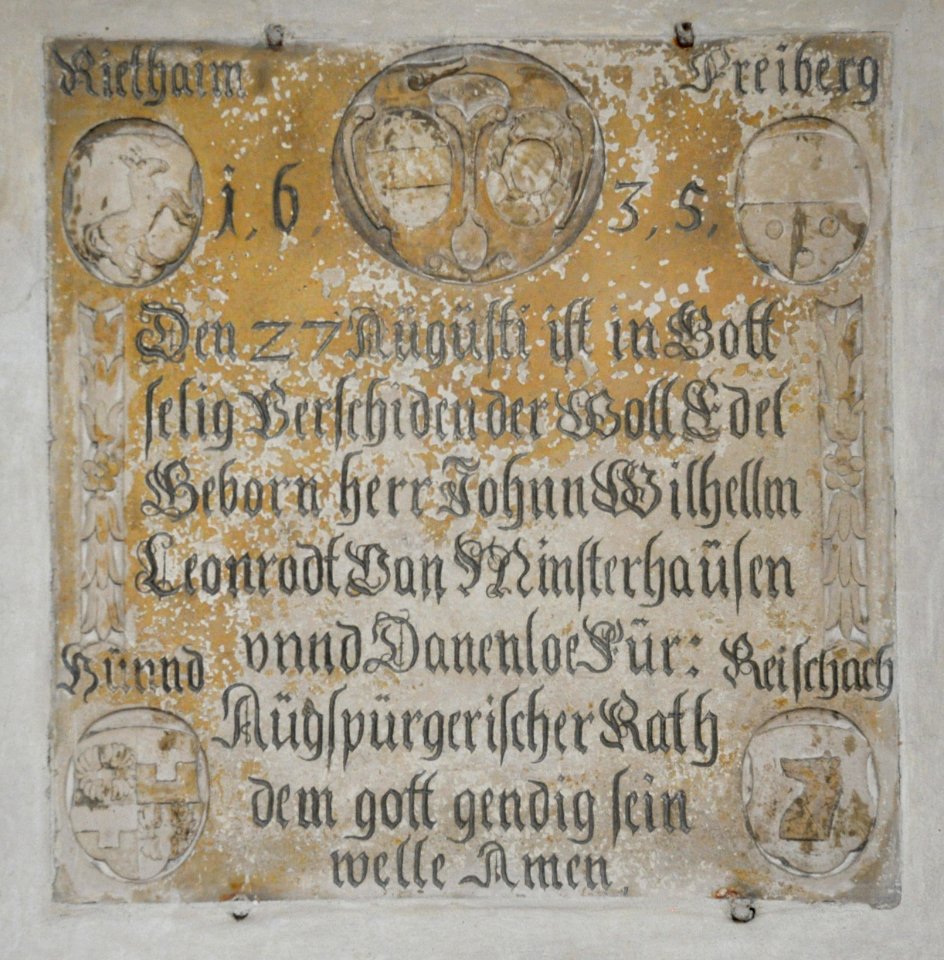 Riethaim Freiberg
1, 6, 3, 5,
Den 27 Augüsti ist in Gott
selig Verschiden der Woll Edel
Geborn herr Johnn Wilhellm
Leonrodt Van Minsterhaüsen
vnnd Danenloe Für:
Hürnd Reischach
Aügspürgerischer Rath
dem gott gendig sein
welle Amen,